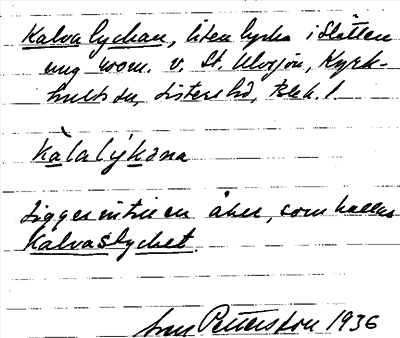 Kalvalyckan, liten lycka i Slätten
ung 400 m. v. St. Ulvsjön, Kyrk-
hults sn, Listers hd, Blek. l.
Kàlalỳkəna
Ligger intill en åker, som kallas
Kalvaslycket.
Pettersson 1936